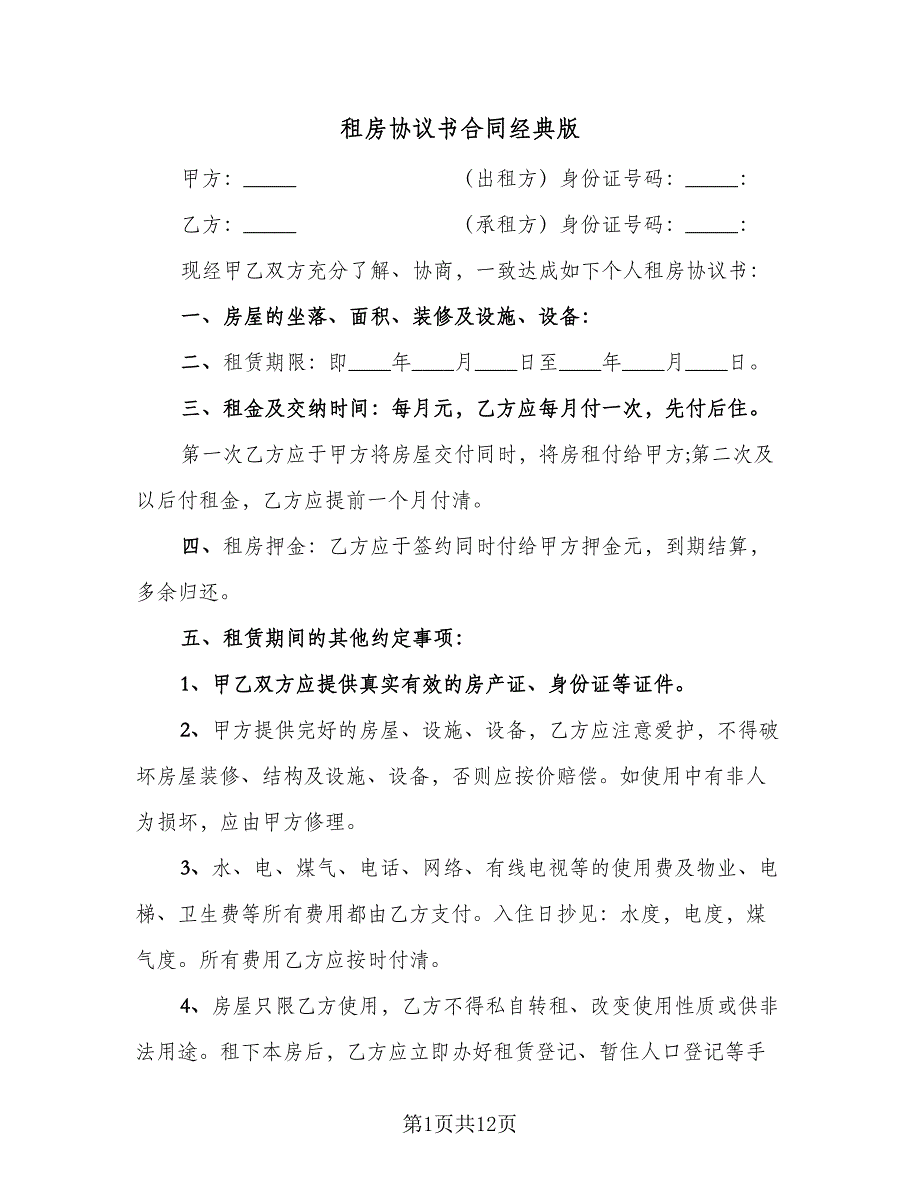 租房协议书合同经典版
甲方：_____ （出租方）身份证号码：_____：
乙方：_____ （承租方）身份证号码：_____：
现经甲乙双方充分了解、协商，一致达成如下个人租房协议书：
一、房屋的坐落、面积、装修及设施、设备：
二、租赁期限：即____年____月____日至____年____月____日。
三、租金及交纳时间：每月元，乙方应每月付一次，先付后住。
第一次乙方应于甲方将房屋交付同时，将房租付给甲方;第二次及
以后付租金，乙方应提前一个月付清。
四、租房押金：乙方应于签约同时付给甲方押金元，到期结算，
多余归还。
五、租赁期间的其他约定事项：
1、甲乙双方应提供真实有效的房产证、身份证等证件。
2、甲方提供完好的房屋、设施、设备，乙方应注意爱护，不得破
坏房屋装修、结构及设施、设备，否则应按价赔偿。如使用中有非人
为损坏，应由甲方修理。
3、水、电、煤气、电话、网络、有线电视等的使用费及物业、电
梯、卫生费等所有费用都由乙方支付。入住日抄见：水度，电度，煤
气度。所有费用乙方应按时付清。
4、房屋只限乙方使用，乙方不得私自转租、改变使用性质或供非
法用途。租下本房后，乙方应立即办好租赁登记、暂住人口登记等手
第1页共12页